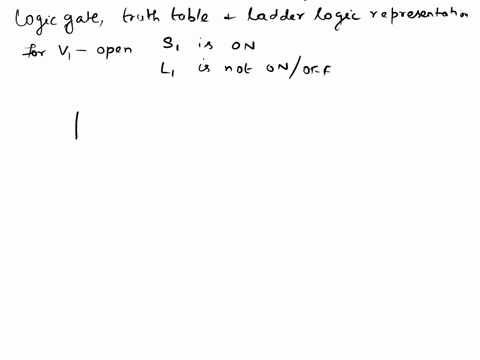 Logic gate, truth table + ladder logic representation
for V1 - open S1 is ON
L1 is not ON/OFF